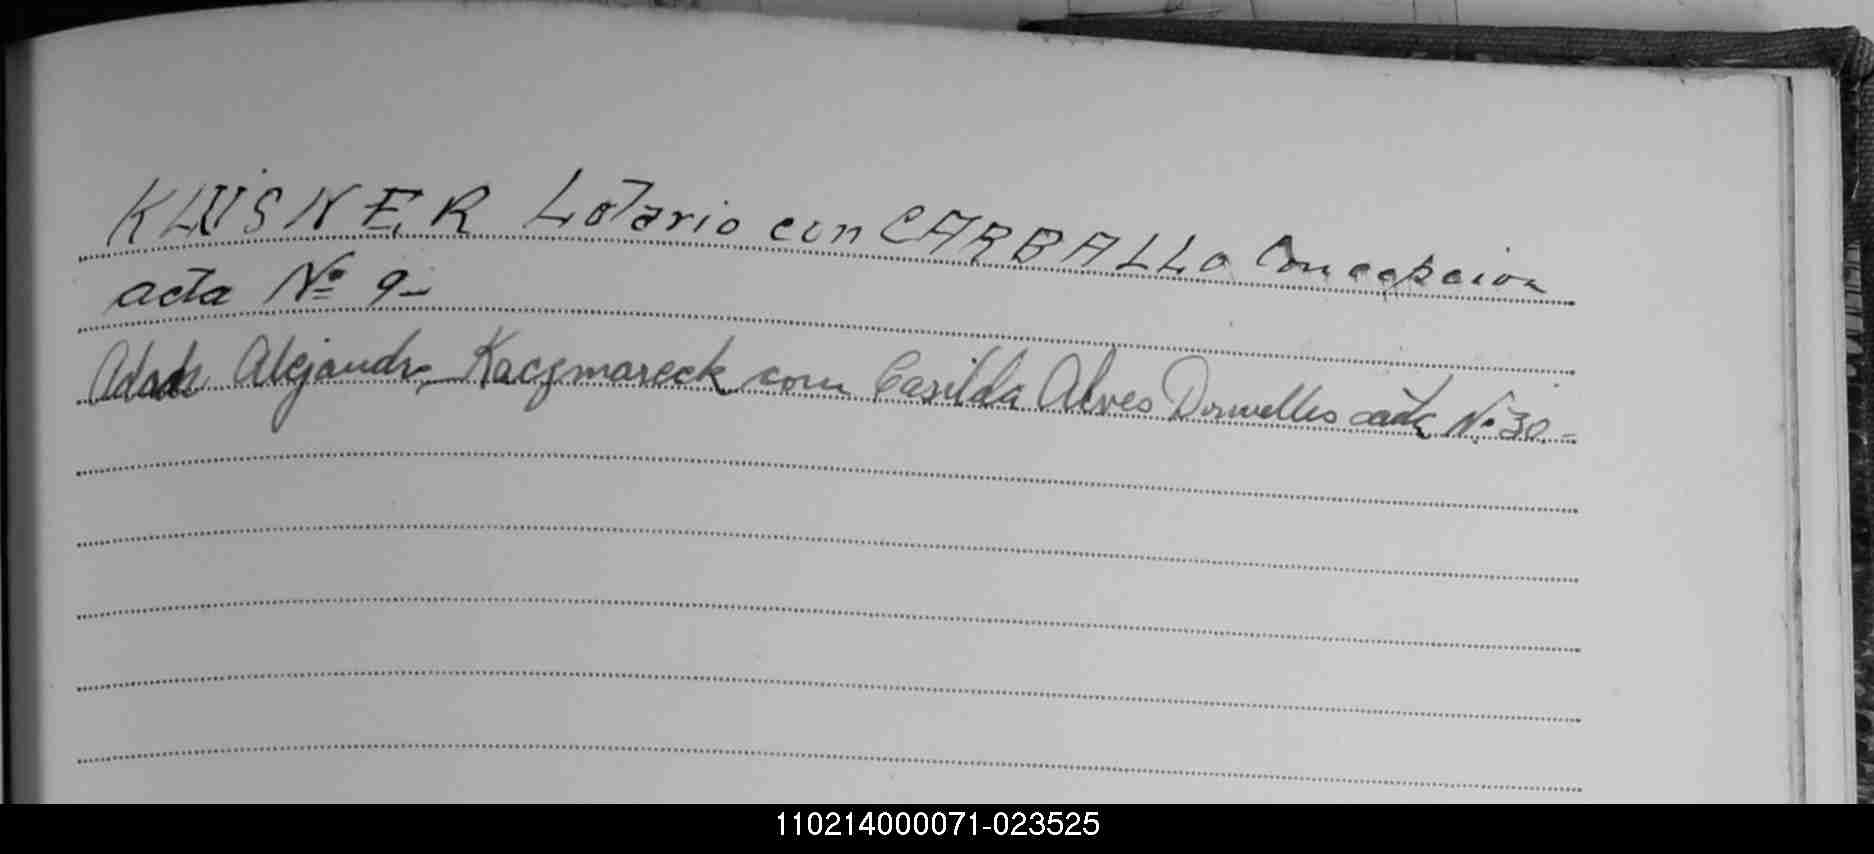 KLUISNER Lotario con CARBALLO Concepcion
acta Nº 9-
Adan Alejandro Kaczmareck com Casilda Alves Dornelles acta Nº 30-
110214000071-023525